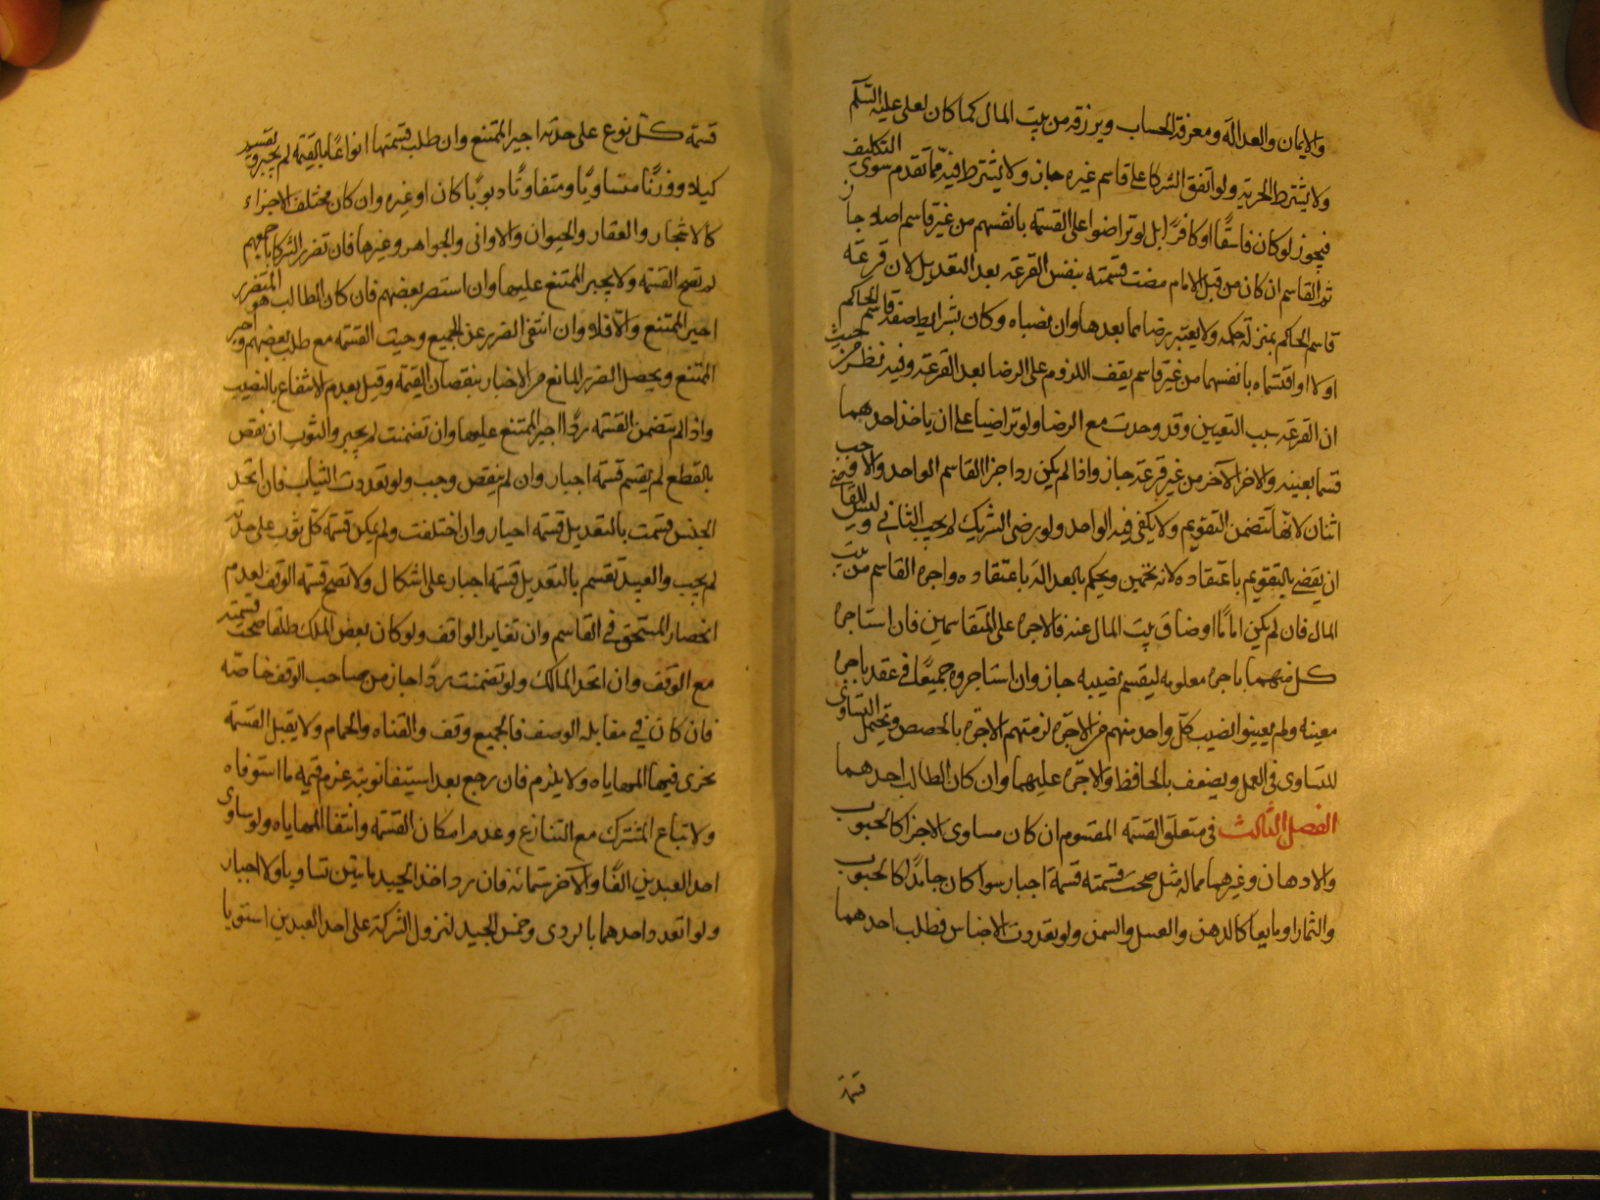 والايمان والعدالة ومعرفة الحساب ويرزقه من بيت المال كما كان لعلي عليه السلم
ولا يشترط الحرية ولو اتفق الشركا على قاسم غيره جاز ولا يشترط فيه مما تقدم سوى التكليف
فيجوز لو كان فاسقا او كافرا بل لو تراضوا على القسمة بانفسهم من غير قاسم اصلا جاز
ثم القاسم ان كان من قبل الامام مضت قسمته بنفس القرعة بعد التعديل لان قرعة
قاسم الحاكم بمنزلة حكمه ولا يعتبر رضاهما بعدها وان نصباه وكان بشرايط صفة قاسم الحاكم
اولا او اقتسماه بانفسهما من غير قاسم يقف اللزوم على الرضا بعد القرعة وفيه نظر من حيث
ان القرعة سبب التعيين وقد وجدت مع الرضا ولو تراضيا على ان ياخذ احدهما
قسما بعينه والاخر الآخر من غير قرعة جاز واذا لم يكن ردا اجزا القاسم الواحد والا وجب
اثنان لانها تتضمن التقويم ولا يكفي فيه الواحد ولو رضي الشريك لم يجب الثاني وليس للقاسم
ان يقضي بالتقويم باعتقاده لانه تخمين ويحكم بالعدالة باعتقاده واجرة القاسم من بيت
المال فان لم يكن اماما او ضاق بيت المال عنه فالاجرة على المتقاسمين فان استاجره
كل منهما باجرة معلومة ليقسم نصيبه جاز وان استاجروه جميعا في عقد باجرة
معينة ولم يعينوا نصيب كل واحد منهم من الاجرة لزمتهم الاجرة بالحصص ويحتمل التساوي
للتساوي في العمل ويضعف بالحافظ والاجرة عليهما وان كان الطالب احدهما
الفصل الثالث في متعلق القسمة المقسوم ان كان مساوى الاجزا كالحبوب
والادهان وغيرهما مما له مثل صحت قسمته قسمة اجبار سوا كان جامدا كالحبوب
والثمار او مايعا كالدهن والعسل والسمن ولو تعددت الاجناس فطلب احدهما
قسمة
قسمة كل نوع على حدته اجبر الممتنع وان طلب قسمتها انواعا بالقيمة لم يجبر ويقسم
كيلا ووزنا متساويا ومتفاوتا ربويا كان او غيره وان كان مختلف الاجزاء
كالاشجار والعقار والحيوان والاواني والجواهر وغيرها فان تضرر الشركا باجمعهم
لم تصح القسمة ولا يجبر الممتنع عليها وان استضر بعضهم فان كان الطالب هو المتضرر
اجبر الممتنع والا فلا وان انتفى الضرر عن الجميع وجبت القسمة مع طلب بعضهم واجبر
الممتنع ويحصل الضرر المانع من الاجبار بنقصان القيمة وقيل بعدم الانتفاع بالنصيب
واذا لم تتضمن القسمة ردا اجبر الممتنع عليها وان تضمنت لم يجبر والثوب ان نقص
بالقطع لم يقسم قسمة اجبار وان لم ينقص وجب ولو تعددت الثياب فان اتحد
الجنس قسمت بالتعديل قسمة اجبار وان اختلفت ولم يمكن قسمة كل ثوب على حدته
لم يجب والعبيد تقسم بالتعديل قسمة اجبار على اشكال ولا تصح قسمة الوقف لعدم
انحصار المستحق في القاسم وان تغاير الواقف ولو كان بعض الملك طلقا صحت قسمته
مع الوقف وان اتحد المالك ولو تضمنت ردا جاز من صاحب الوقف خاصة
فان كان في مقابلة الوصف فالجميع وقف والقناه والحمام ولا يقبل القسمة
تجرى فيها المهاياه ولا يلزم فان رجع بعد استيفا نوبته غرم قيمة ما استوفاه
ولا تباع المشترك مع التنازع وعدم امكان القسمة وانتفا المهاياه ولو ساوى
احد العبدين الفا والآخر ستمائة فان رد اخذ الجيد مايتين تساويا ولا اجبار
ولو انفرد احدهما بالردى وخمس الجيد لنزول الشركة على احد العبدين استويا